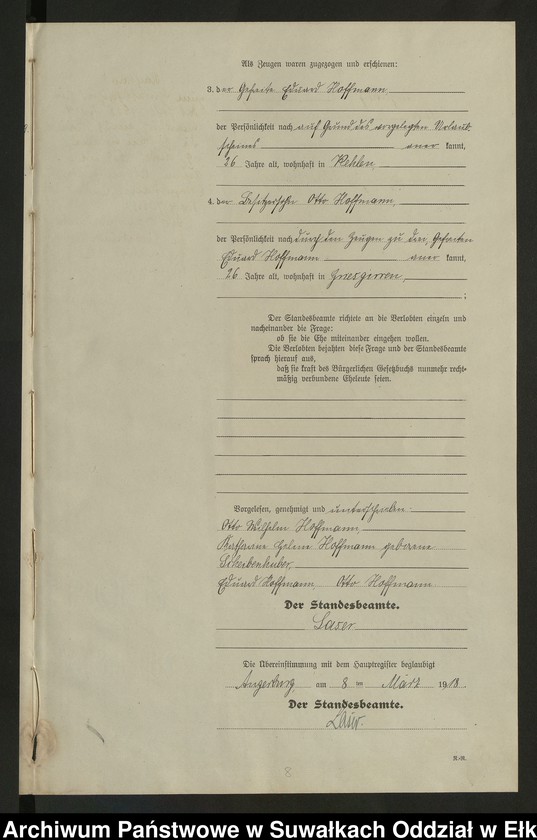 Als Zeugen waren zugezogen und erschienen:
3. der Gefreite Eduard Hoffmann
der Persönlichkeit nach auf Grund des vorgelegten Urlaub-
scheines aner kannt,
26 Jahre alt, wohnhaft in Kehlen
4. der Besitzersohn Otto Hoffmann,
der Persönlichkeit nach durch den Zeugen zu drei, Gefreiten
Eduard Hoffmann aner kannt,
26 Jahre alt, wohnhaft in
;
Der Standesbeamte richtete an die Verlobten einzeln und
nacheinander die Frage:
ob sie die Ehe miteinander eingehen wollen.
Die Verlobten bejahten diese Frage und der Standesbeamte
sprach hierauf aus,
daß sie kraft des Bürgerlichen Gesetzbuchs nunmehr recht-
mäßig verbundene Eheleute seien.
Vorgelesen, genehmigt und unterschrieben
Otto Wilhelm Hoffmann
Helene Hoffmann geborene
Scheibenhuber
Eduard Hoffmann, Otto Hoffmann
Der Standesbeamte.
Laser
Die Übereinstimmung mit dem Hauptregister beglaubigt
Angerburg am 8 ten März 1918.
Der Standesbeamte.
Laser.
8
Archiwum Państwowe w Suwałkach Oddział w Ełk